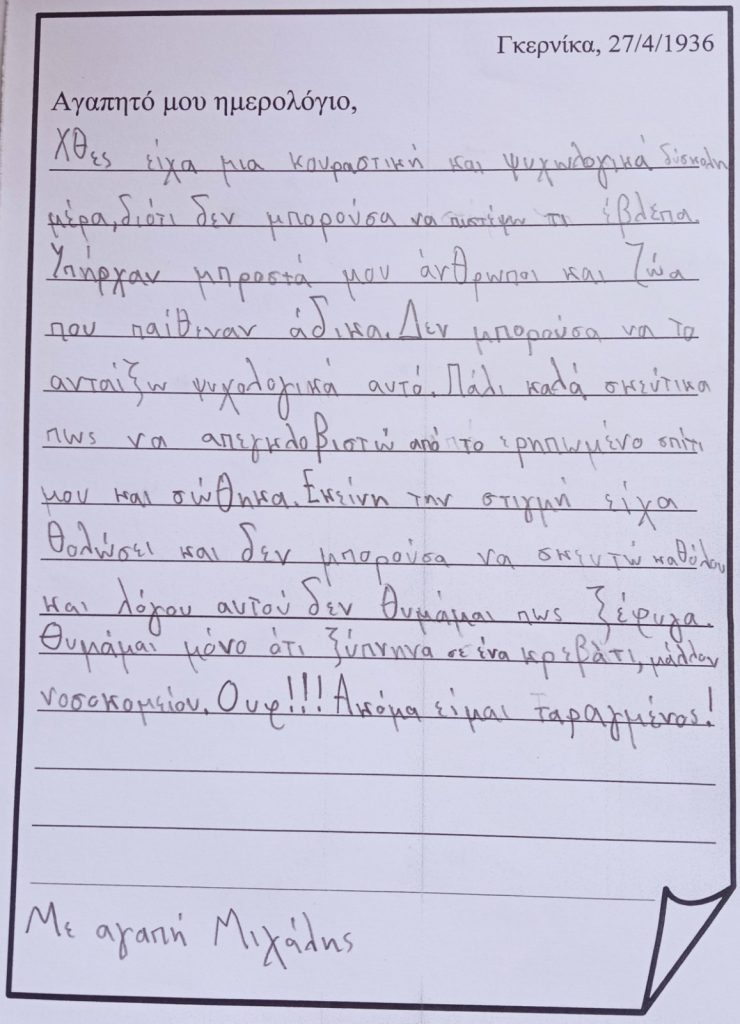 Γκερνίκα, 27/4/1936
Αγαπητό μου ημερολόγιο,
Χθες είχα μια κουραστική και ψυχωλογικά δύσκολη
μέρα, διότι δεν μπορούσα να πιστέψω τι έβλεπα.
Υπήρχαν μπροστά μου άνθρωποι και ζώα
που παίθεναν άδικα. Δεν μπορούσα να το
ανταίξω ψυχολογικά αυτό. Πάλι καλά σκεύτικα
πως να απεγκλοβιστώ από το ερηπωμένο σπίτι
μου και σώθηκα. Εκείνη την στιγμή είχα
θολώσει και δεν μπορούσα να σκευτώ καθόλου
και λόγου αυτού δεν θυμάμαι πως ξέφυγα.
Θυμάμαι μόνο ότι ξύπνηνα σε ένα κρεβάτι, μάλλον
νοσοκομείου. Ουφ!!! Ακόμα είμαι ταραγμένος!
Με αγαπή Μιχάλης